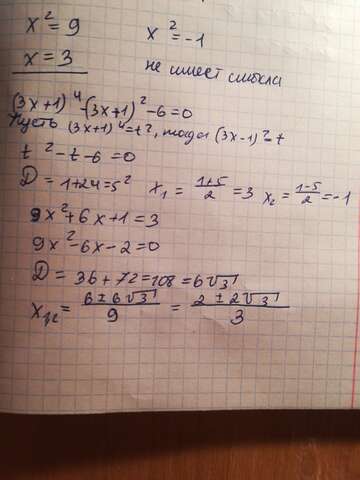 x² = 9
x² = -1
x = 3
не имеет смысла
(3x+1)⁴-(3x+1)²-6=0
Пусть (3x+1)⁴=t², тогда (3x-1)²=t
t²-t-6=0
D = 1+24=5² x₁ = (1+5)/2 = 3 x₂ = (1-5)/2 = -1
9x²+6x+1=3
9x²-6x-2=0
D = 36+72=108=6√3
x₁,₂ = (6±6√3)/9 = (2±2√3)/3